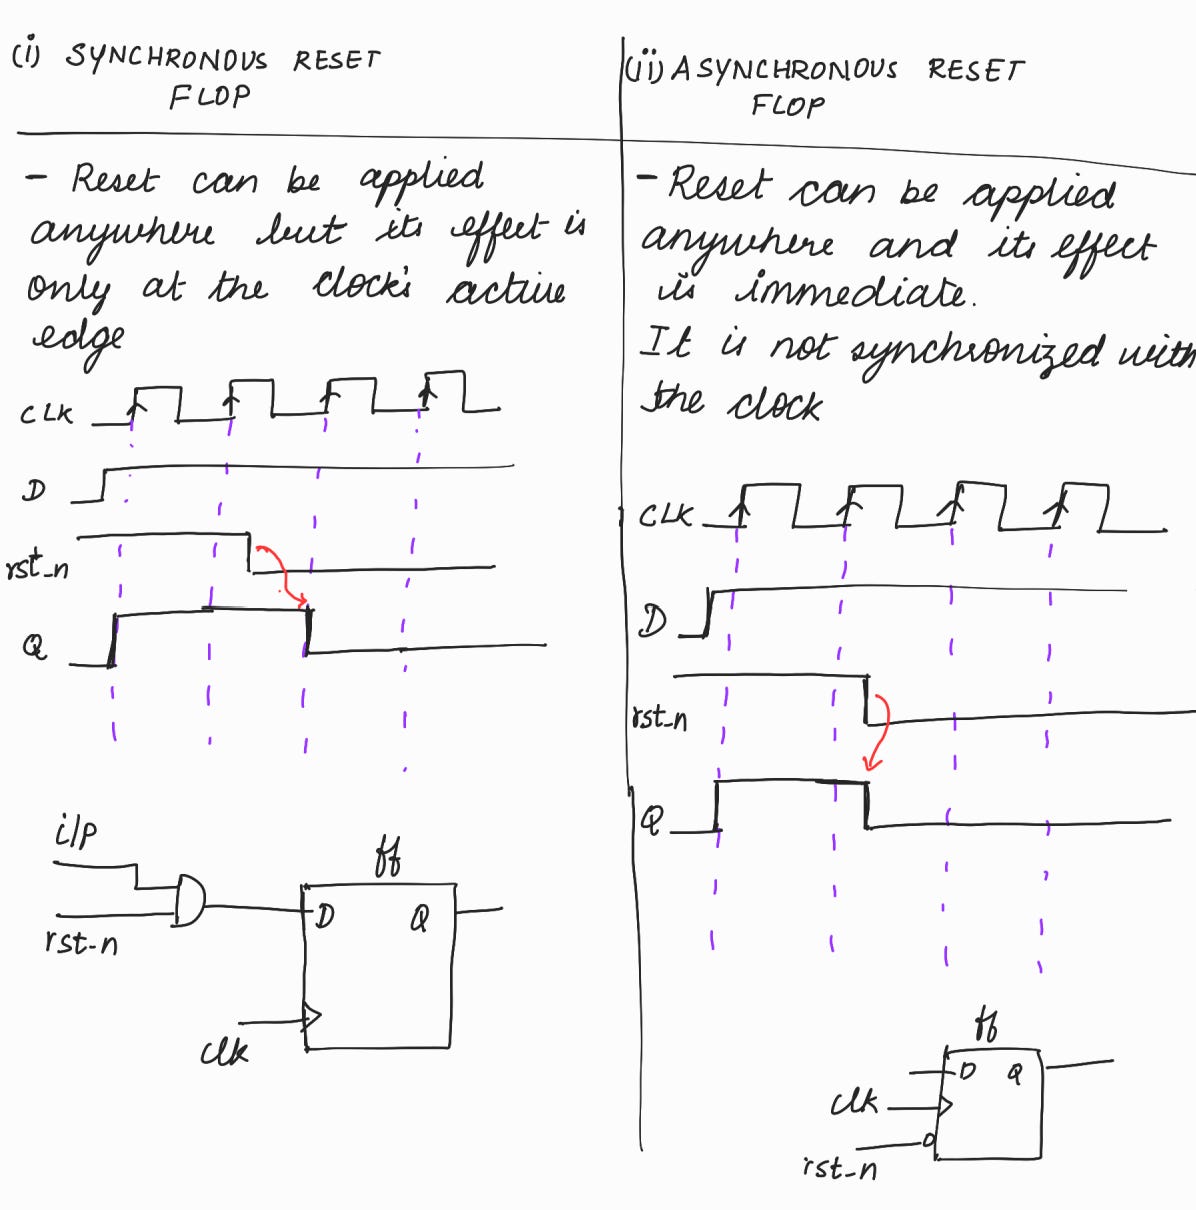 (i) SYNCHRONOUS RESET
FLOP
- Reset can be applied
anywhere but its effect is
only at the clock's active
edge
CLK
D
rst_n
Q
i/p
rst_n
ff
D Q
clk
(ii) ASYNCHRONOUS RESET
FLOP
- Reset can be applied
anywhere and its effect
is immediate.
It is not synchronized with
the clock
CLK
D
rst_n
Q
ff
D Q
clk
rst_n